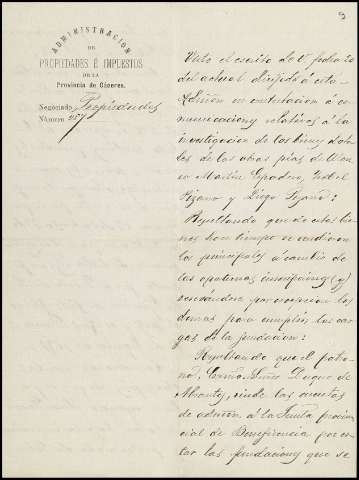 9
ADMINISTRACION
DE
PROPIEDADES É IMPUESTOS
DE LA
Provincia de Cáceres.
Negociado Propiedades
Número 257
Visto el escrito de V. fecha 20
del actual dirigido á esta
Admón en contestacion á co
municaciones relativas á la
investigacion de los bienes dota
les de las obras pias de
Martin Espadero, Isabel
Pizarro y Diego
Resultando que de estos bie
nes hace tiempo se vendieron
los principales á cambio de
las oportunas inscripciones (q)
los
demas para cumplir las car
gas de la fundacion:
Resultando que el patro
no, Excmo. Señor Duque de
Abrantes, rinde las cuentas
de adicion á la Junta provin
cial de Beneficencia por es
tar las fundaciones que se